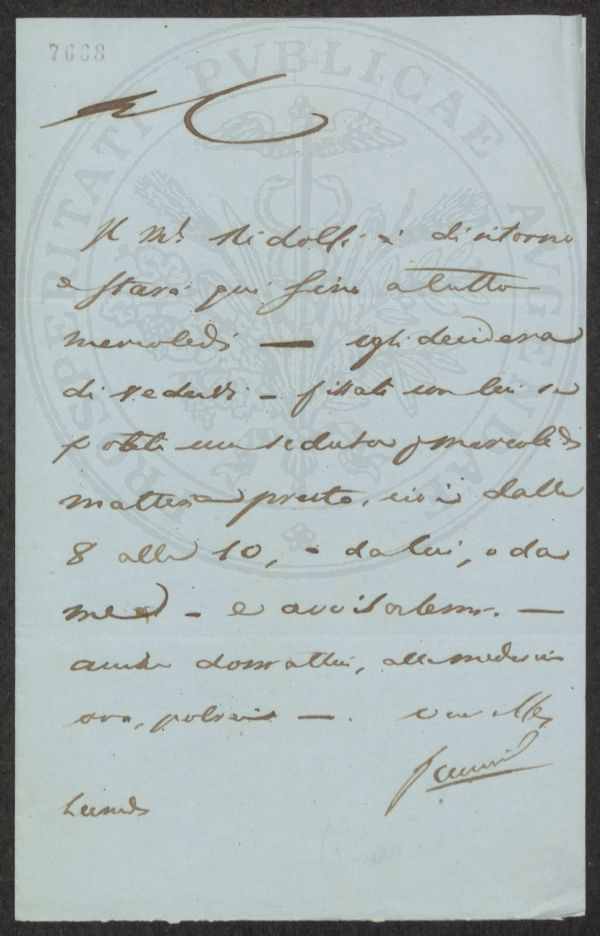 7668
PROSPERITATI PVBLICAE AVGENDAE
Il M.e Ridolfi è di ritorno
e starà qui fino a tutto
mercoledì — egli desidera
di vedervi – fissate con lui se
potete una seduta p mercoledì
mattina presto, cioè dalle
8 alle 10, o da lui, o da
me – e avvisatemi. —
anche domattina, alla medesima
ora, potrei — .
Lunedì